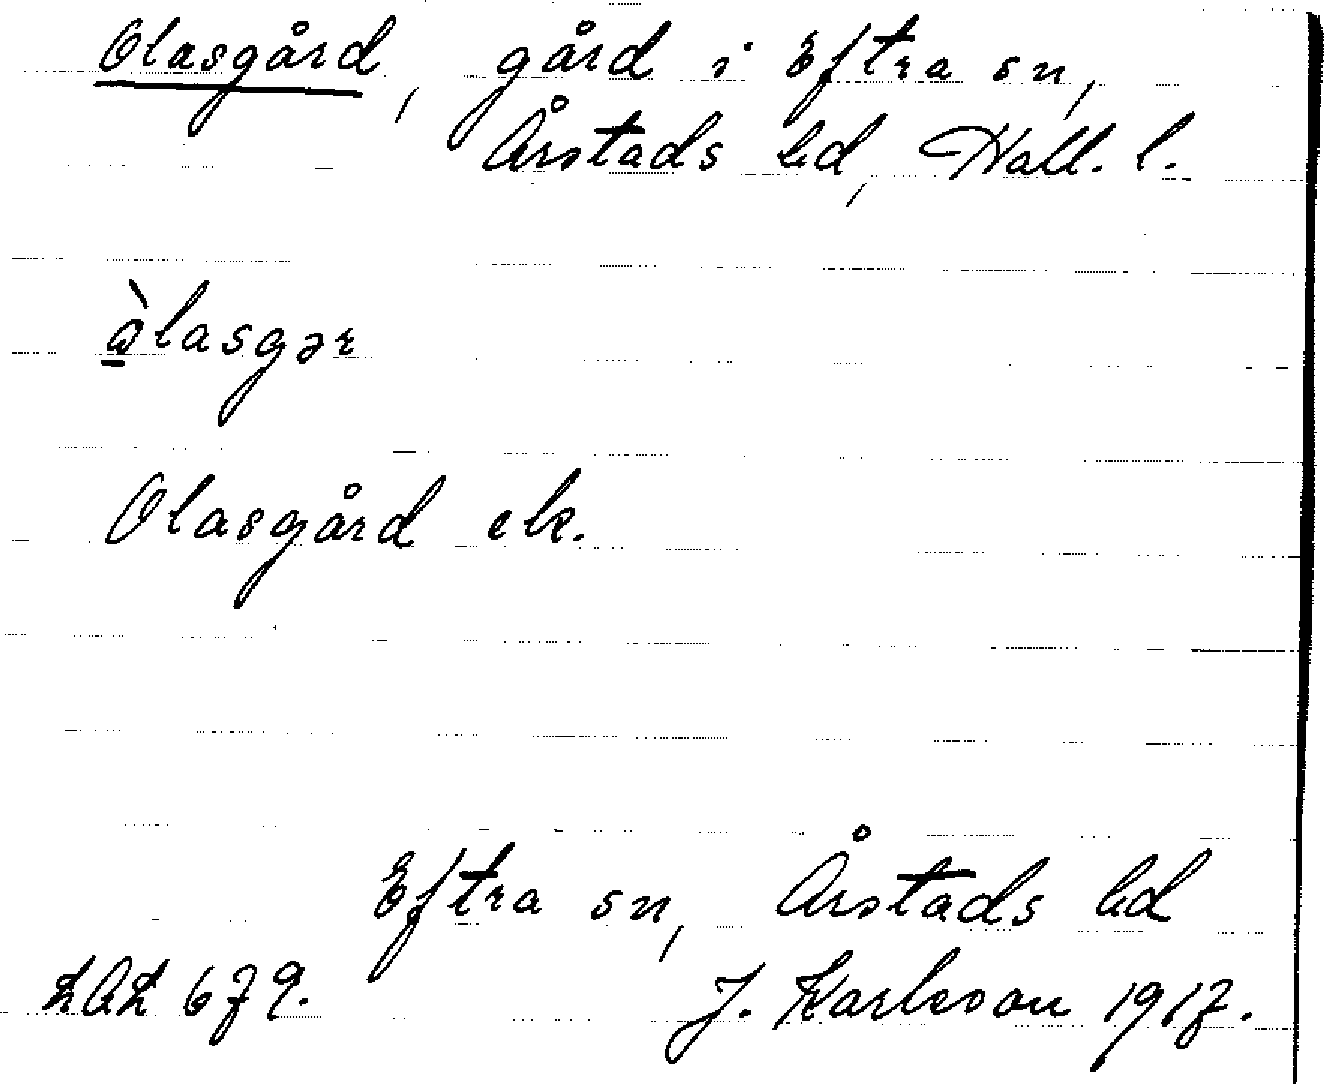 Olasgård, gård i Eftra sn,
Årstads hd, Hall. l.
òlasgər
Olasgård ek.
Eftra sn, Årstads hd
LAL 679. J. Karlsson 1917.